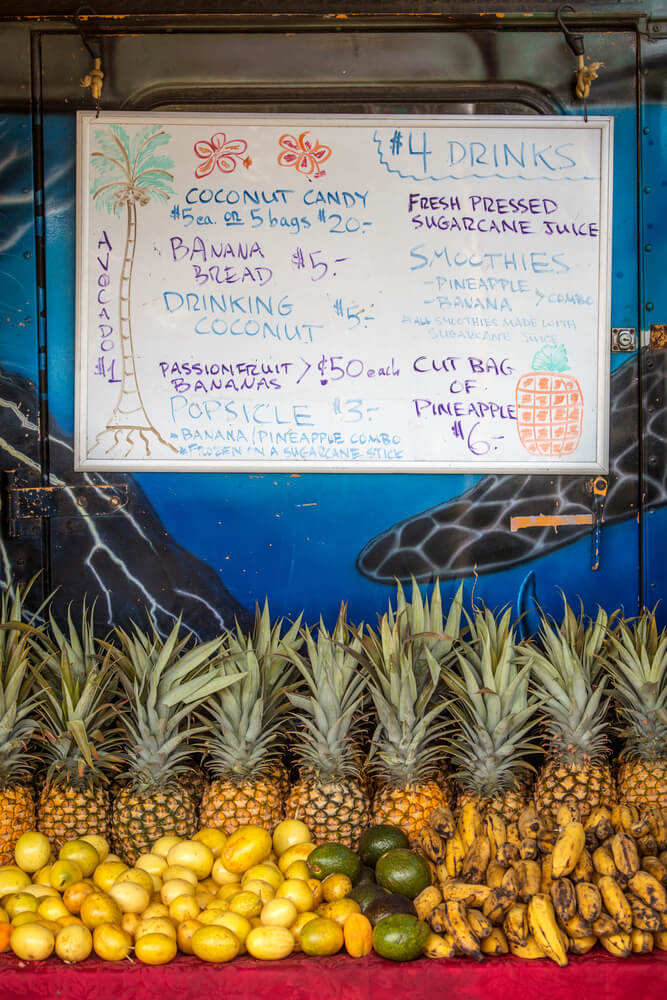 AVOCADO $1
COCONUT CANDY
$5ea. OR 5 bags $20.-
BANANA
BREAD $5.-
DRINKING
COCONUT $5.-
PASSIONFRUIT
BANANAS > ¢50 each
POPSICLE $3.-
*BANANA/PINEAPPLE COMBO
*FROZEN ON A SUGARCANE STICK
$4 DRINKS
FRESH PRESSED
SUGARCANE JUICE
SMOOTHIES
-PINEAPPLE
-BANANA > COMBO
*ALL SMOOTHIES MADE WITH
SUGARCANE JUICE
CUT BAG
OF
PINEAPPLE
$6.-